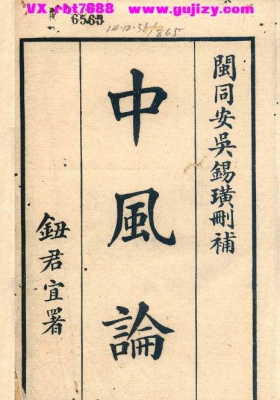 VX rbt7688 www.gujizy.com
6565
閩同安吳錫璜刪補
中風論
鈕君宜署